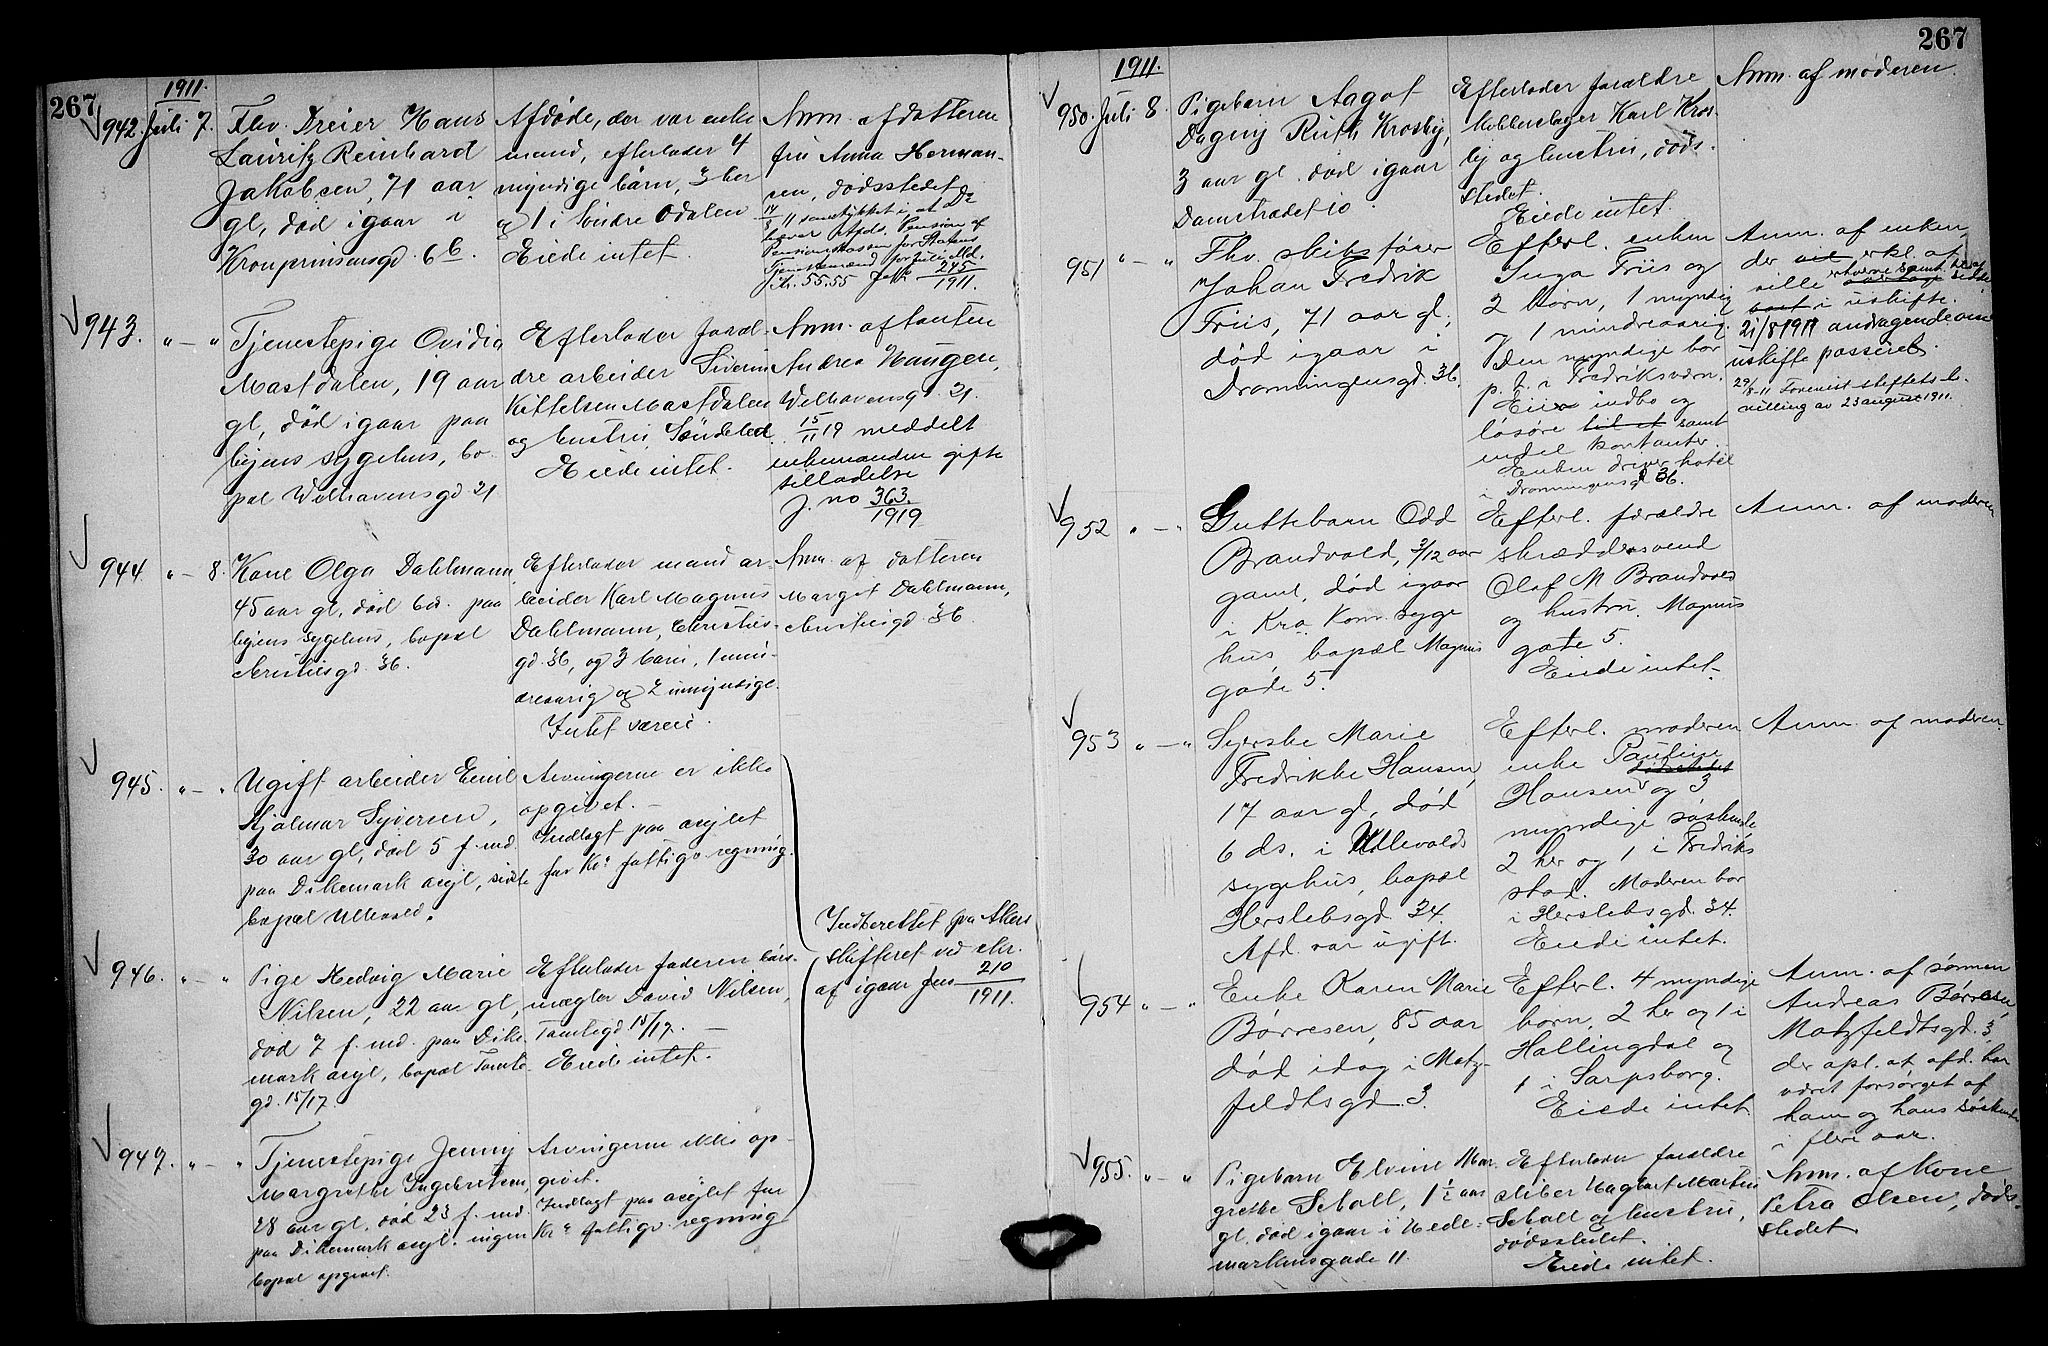 267
1911.
942. Juli 7. Fhv. Dreier Hans
Lauritz Reinhard
Jakobsen, 71 aar
gl, død igaar i
Kronprinsensgd. 6 b.
Afdøde, der var enke
mand, efterlader 4
myndige børn, 3 her
og 1 i Søndre Odalen
Eiede intet.
Anm. af datteren
fru Anna Herman-
sen, dødsstedet
Pension af
Pensionskassen for Statens
Tjenestemænd for Juli Md.
kr. 55.55 Jnr. 245/1911.
943. " — " Tjenestepige Ovidia
Mastdalen, 19 aar
gl, død igaar paa
byens sygehus, bo-
pæl Welhavensgd 21
Efterlader foræl-
dre arbeider Siverin
Kittelsen Mastdalen
og hustru, Søndeled
Eiede intet.
Anm. af tanten
Andrea Haugen,
Welhavensgd. 21.
15/11 19 meddelt
enkemanden gifte
tilladelse
J. no 363/1919
944. " — 8. Kone Olga Dahlmann
45 aar gl, død 6 ds. paa
byens sygehus, bopæl
Christiesgd. 36.
Efterlader mand ar-
beider Karl Magnus
Dahlmann, Christies-
gd. 36, og 3 børn, 1 min-
dreaarig og 2 umyndige.
Intet særeie.
Anm. af datteren
Margit Dahlmann,
Christiesgd. 36.
945. " — " Ugift arbeider Emil
Hjalmar Syversen,
30 aar gl, død 5 f. md.
paa Dikemark asyl, sidste
bopæl Ullevold.
Arvingerne er ikke
opgivet. —
Indlagt paa asylet
for Kra fattigv. regning.
946. " — " Pige Hedvig Marie
Nilsen, 22 aar gl,
død 7 f. md. paa Dike-
mark asyl, bopæl Tomte-
gd. 15/17.
Efterlader faderen børs-
mægler David Nilsen,
Tomtegd 15/17. —
Eiede intet.
Indberettet fra Akers
skifteret ved skr.
af igaar Jnr 210/1911.
947. " — " Tjenestepige Jenny
Margrethe Ingebretsen,
28 aar gl, død 23 f. md.
paa Dikemark asyl. ingen
bopæl opgivet.
Arvingerne ikke op-
givet.
Indlagt paa asylet for
Kra fattigv. regning
267
1911.
950. Juli 8. Pigebarn Aagot
Dagny Ruth Krosby,
3 aar gl. død igaar
Damstrædet 10
Efterlader forældre
kobberslager Karl Kros-
by og hustru, døds-
stedet.
Eiede intet.
Anm. af moderen.
951 " — " Fhv. skibsfører
Johan Fredrik
Friis, 71 aar gl,
død igaar i
Dronningensgd. 36.
Efterl. enken
Inga Friis og
2 børn, 1 myndig
og 1 mindreaarig.
Den myndige bor
p. t. i Fredriksværn.
Eier indbo og
løsøre til et samt
endel kontanter.
Enken driver hotel
i Dronningensgd 36.
Anm. af enken
der vil erkl. at
ville
i uskifte.
21/8 1911 andragende om
uskifte passeret.
29/8-11 Forevist skiftets be-
villing av 23 august 1911.
952 " — " Guttebarn Odd
Brandvold, 3/12 aar
gaml, død igaar
i Kra. Kom. syge
hus, bopæl Magnus
gade 5.
Efterl. forældre
skræddersvend
Olaf M Brandvold
og hustru, Magnus
gate 5.
Eiede intet.
Anm. af moderen
953 " — " Syerske Marie
Fredrikke Hansen,
17 aar gl, død
6 ds. i Ullevolds
sygehus, bopæl
Herslebsgd. 34.
Afd. var ugift.
Efterl. moderen
enke Pauline
dødsstedet
Hansen og 3
myndige søskende
2 her og 1 i Fredriks
stad. Moderen bor
i Herslebsgd. 34.
Eiede intet.
Anm. af moderen.
954 " — " Enke Karen Marie
Børresen, 85 aar
død idag i Motz-
feldtsgd. 3.
Efterl. 4 myndige
børn, 2 her og 1 i
Hallingdal og
1 i Sarpsborg.
Eiede intet.
Anm. af sønnen
Andreas Børresen,
Motzfeldtsgd. 3,
der opl. at afd. har
været forsørget af
ham og hans søskende
i flere aar.
955. " — " Pigebarn Elvine Mar-
grethe Scholl, 1 1/2 aar
gl, død igaar i Hede-
markensgade 11.
Efterlader forældre
sliber Hagbart Marten
Scholl og hustru,
dødsstedet.
Eiede intet.
Anm. af Kone
Petra Olsen, døds-
stedet